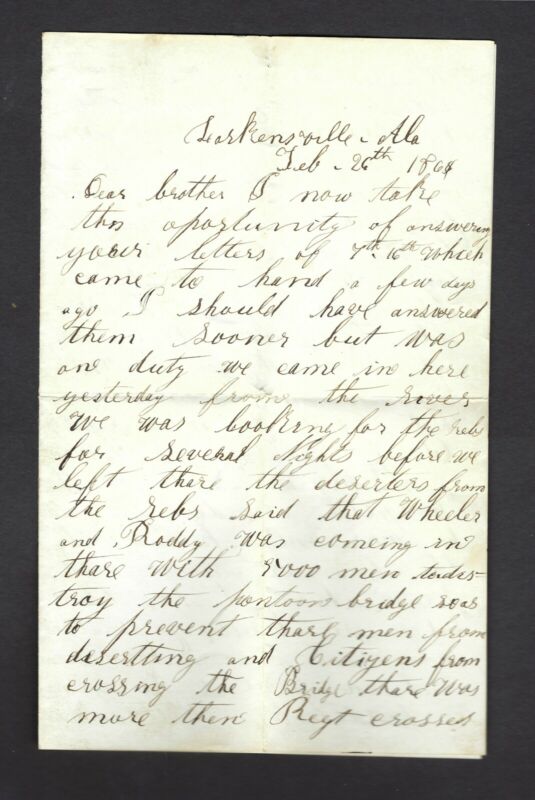 Larkensville - Ala
Feb - 26th 1864
Dear brother I now take
this oportunity of answering
your letters of 7th - 16th which
came to hand a few days
ago I should have answered
them sooner but was
on duty we came in here
yesterday from the River
We was looking for the rebs
for several Nights before we
left thare the deserters from
the rebs said that Wheeler
and Roddy was comeing in
thare with 5000 men todis-
troy the pontoon bridge so as
to prevent thare men from
desertting and Citizens from
crossing the Bridge thare was
more then Regt crossed